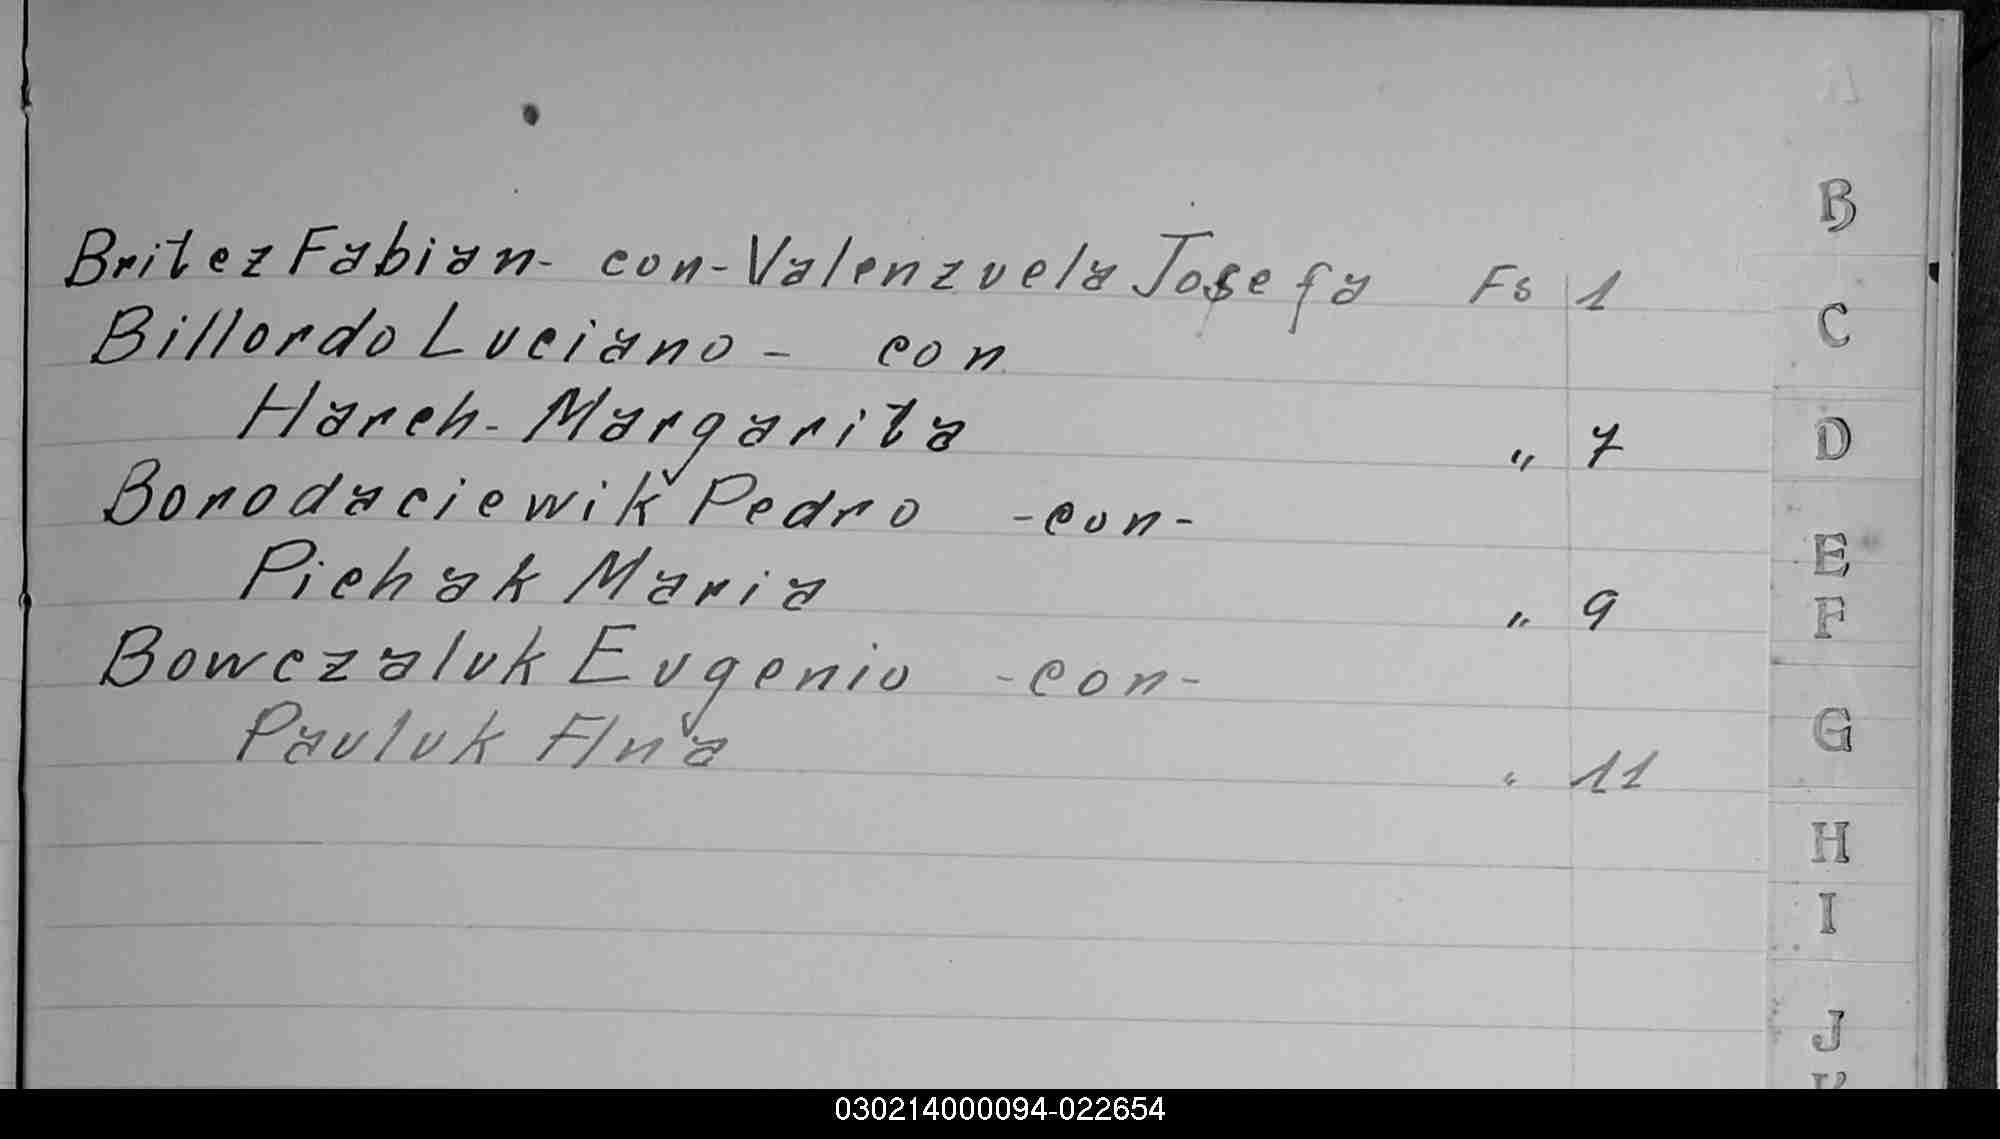 Britez Fabian - con - Valenzuela Josefa Fs 1
Billordo Luciano - con
Harch - Margarita " 7
Borodaciewik Pedro - con -
Pichak Maria " 9
Bowczaluk Eugenio - con -
Pauluk Ana " 11
A
B
C
D
E
F
G
H
I
J
K
030214000094-022654